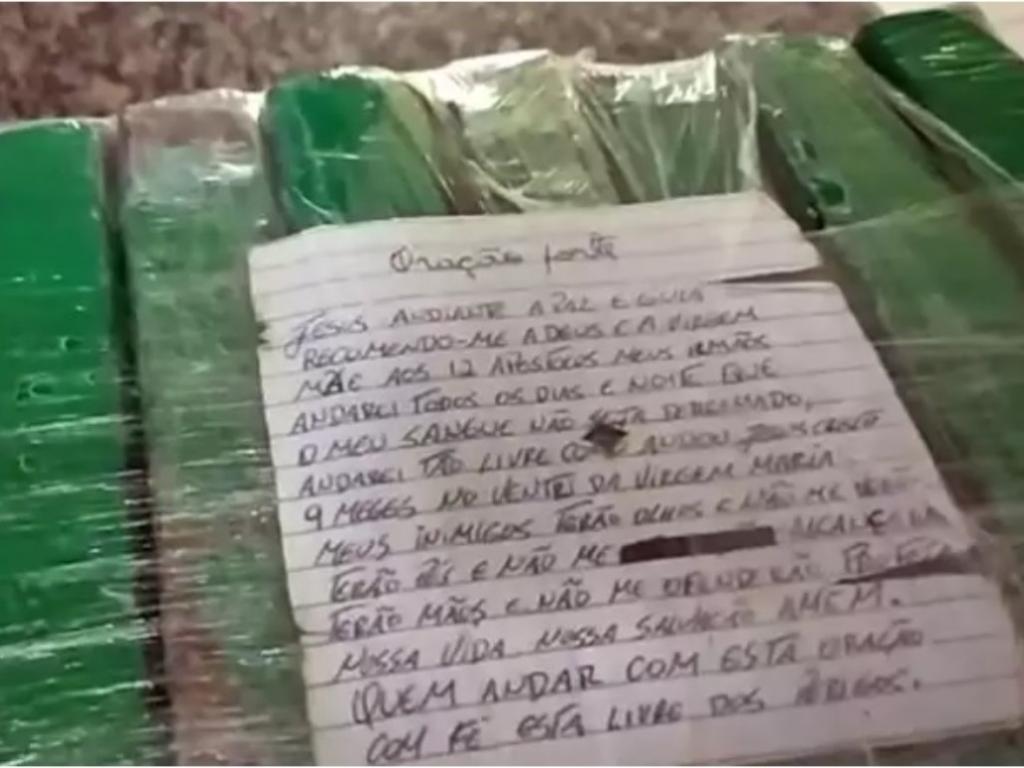 Oração forte
JESUS ANDIANTE A PAZ E GUIA
RECUMENDO-ME A DEUS E A VIRGEM
MÃE AOS 12 APÓSTOLOS MEUS IRMÃOS
ANDAREI TODOS OS DIAS E NOITE QUE
O MEU SANGUE NÃO DERRAMADO,
ANDAREI TÃO LIVRE ANDOU JESUS CRISTO
9 MESES NO VENTRE DA VIRGEM MARIA
MEUS INIMIGOS TERÃO OLHOS E NÃO ME
TERÃO PÉS E NÃO ME
TERÃO MÃOS E NÃO ME OFENDERÃO
NOSSA VIDA NOSSA SALVAÇÃO AMÉM.
QUEM ANDAR COM ESTA ORAÇÃO
COM FÉ ESTA LIVRE DOS PERIGOS.